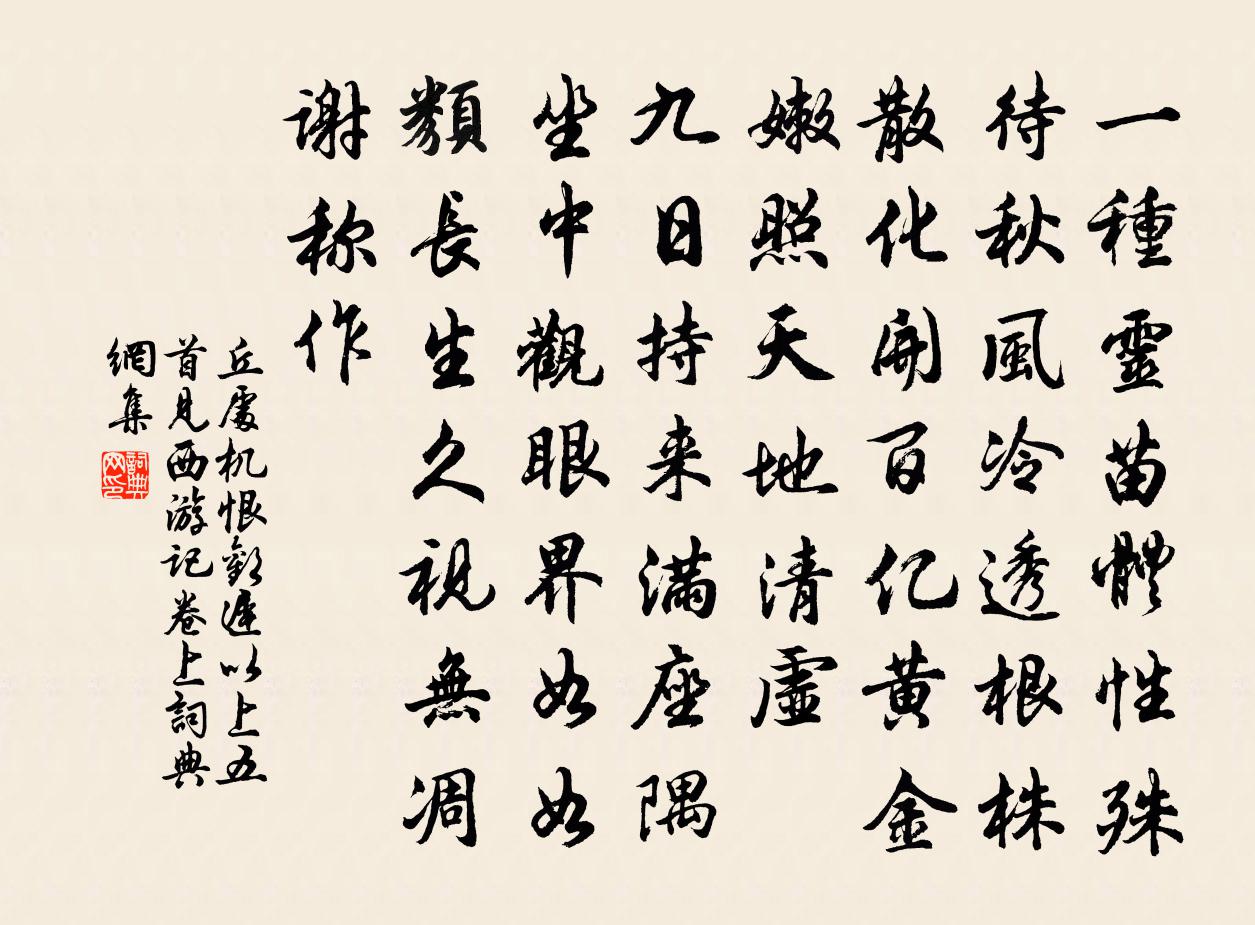 一種靈苗體性殊
待秋風冷透根株
散化開百亿黄金
嫩照天地清虛
九日持来滿座隅
坐中觀眼界如如
類長生久視無凋
謝称作
丘處机恨歡遲以上五
首見西游记卷上詞典
網集